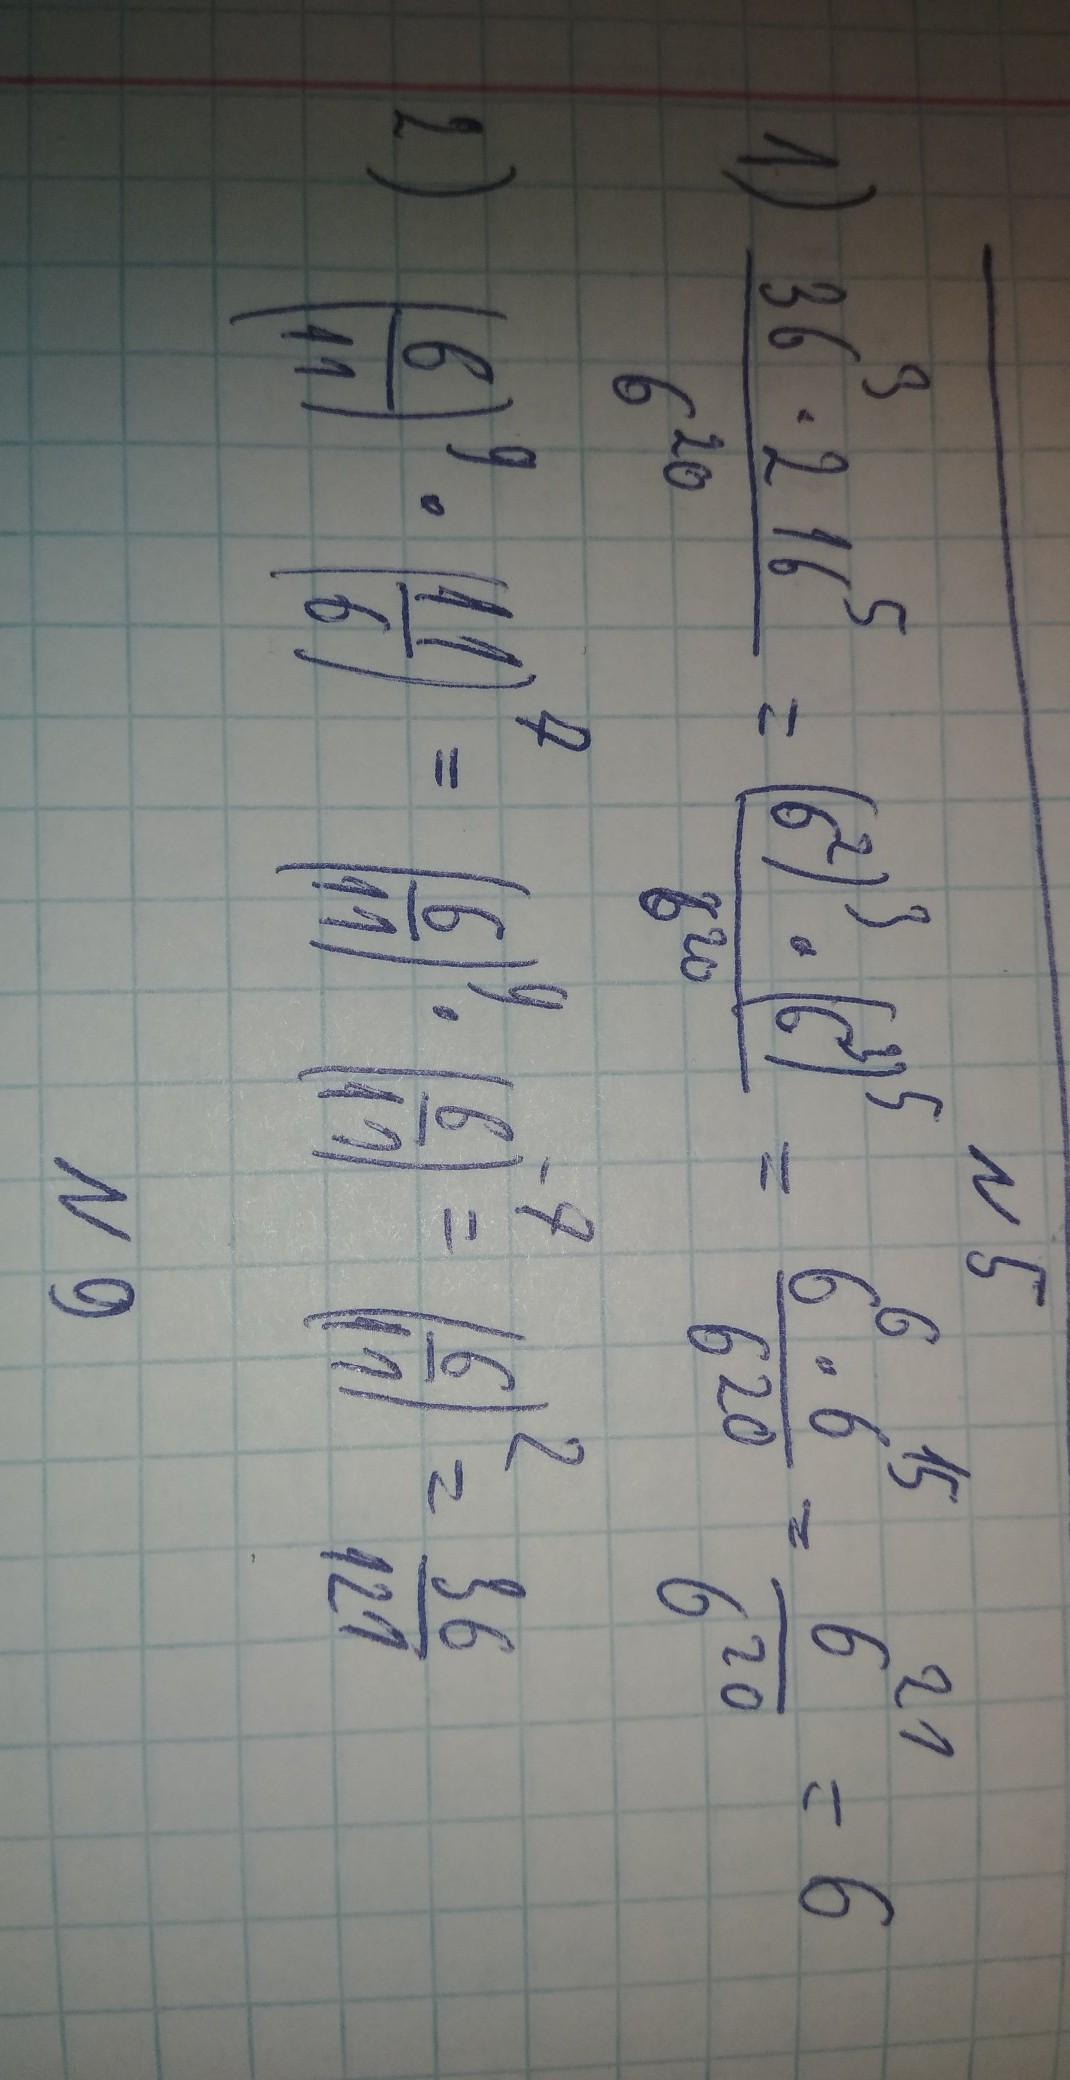 N 5
1) 36³ · 216⁵ / 6²⁰ = (6²)³ · (6³)⁵ / 6²⁰ = 6⁶ · 6¹⁵ / 6²⁰ = 6²¹ / 6²⁰ = 6
2) (6/11)⁹ · (11/6)⁷ = (6/11)⁹ · (6/11)⁻⁷ = (6/11)² = 36/121
N 9